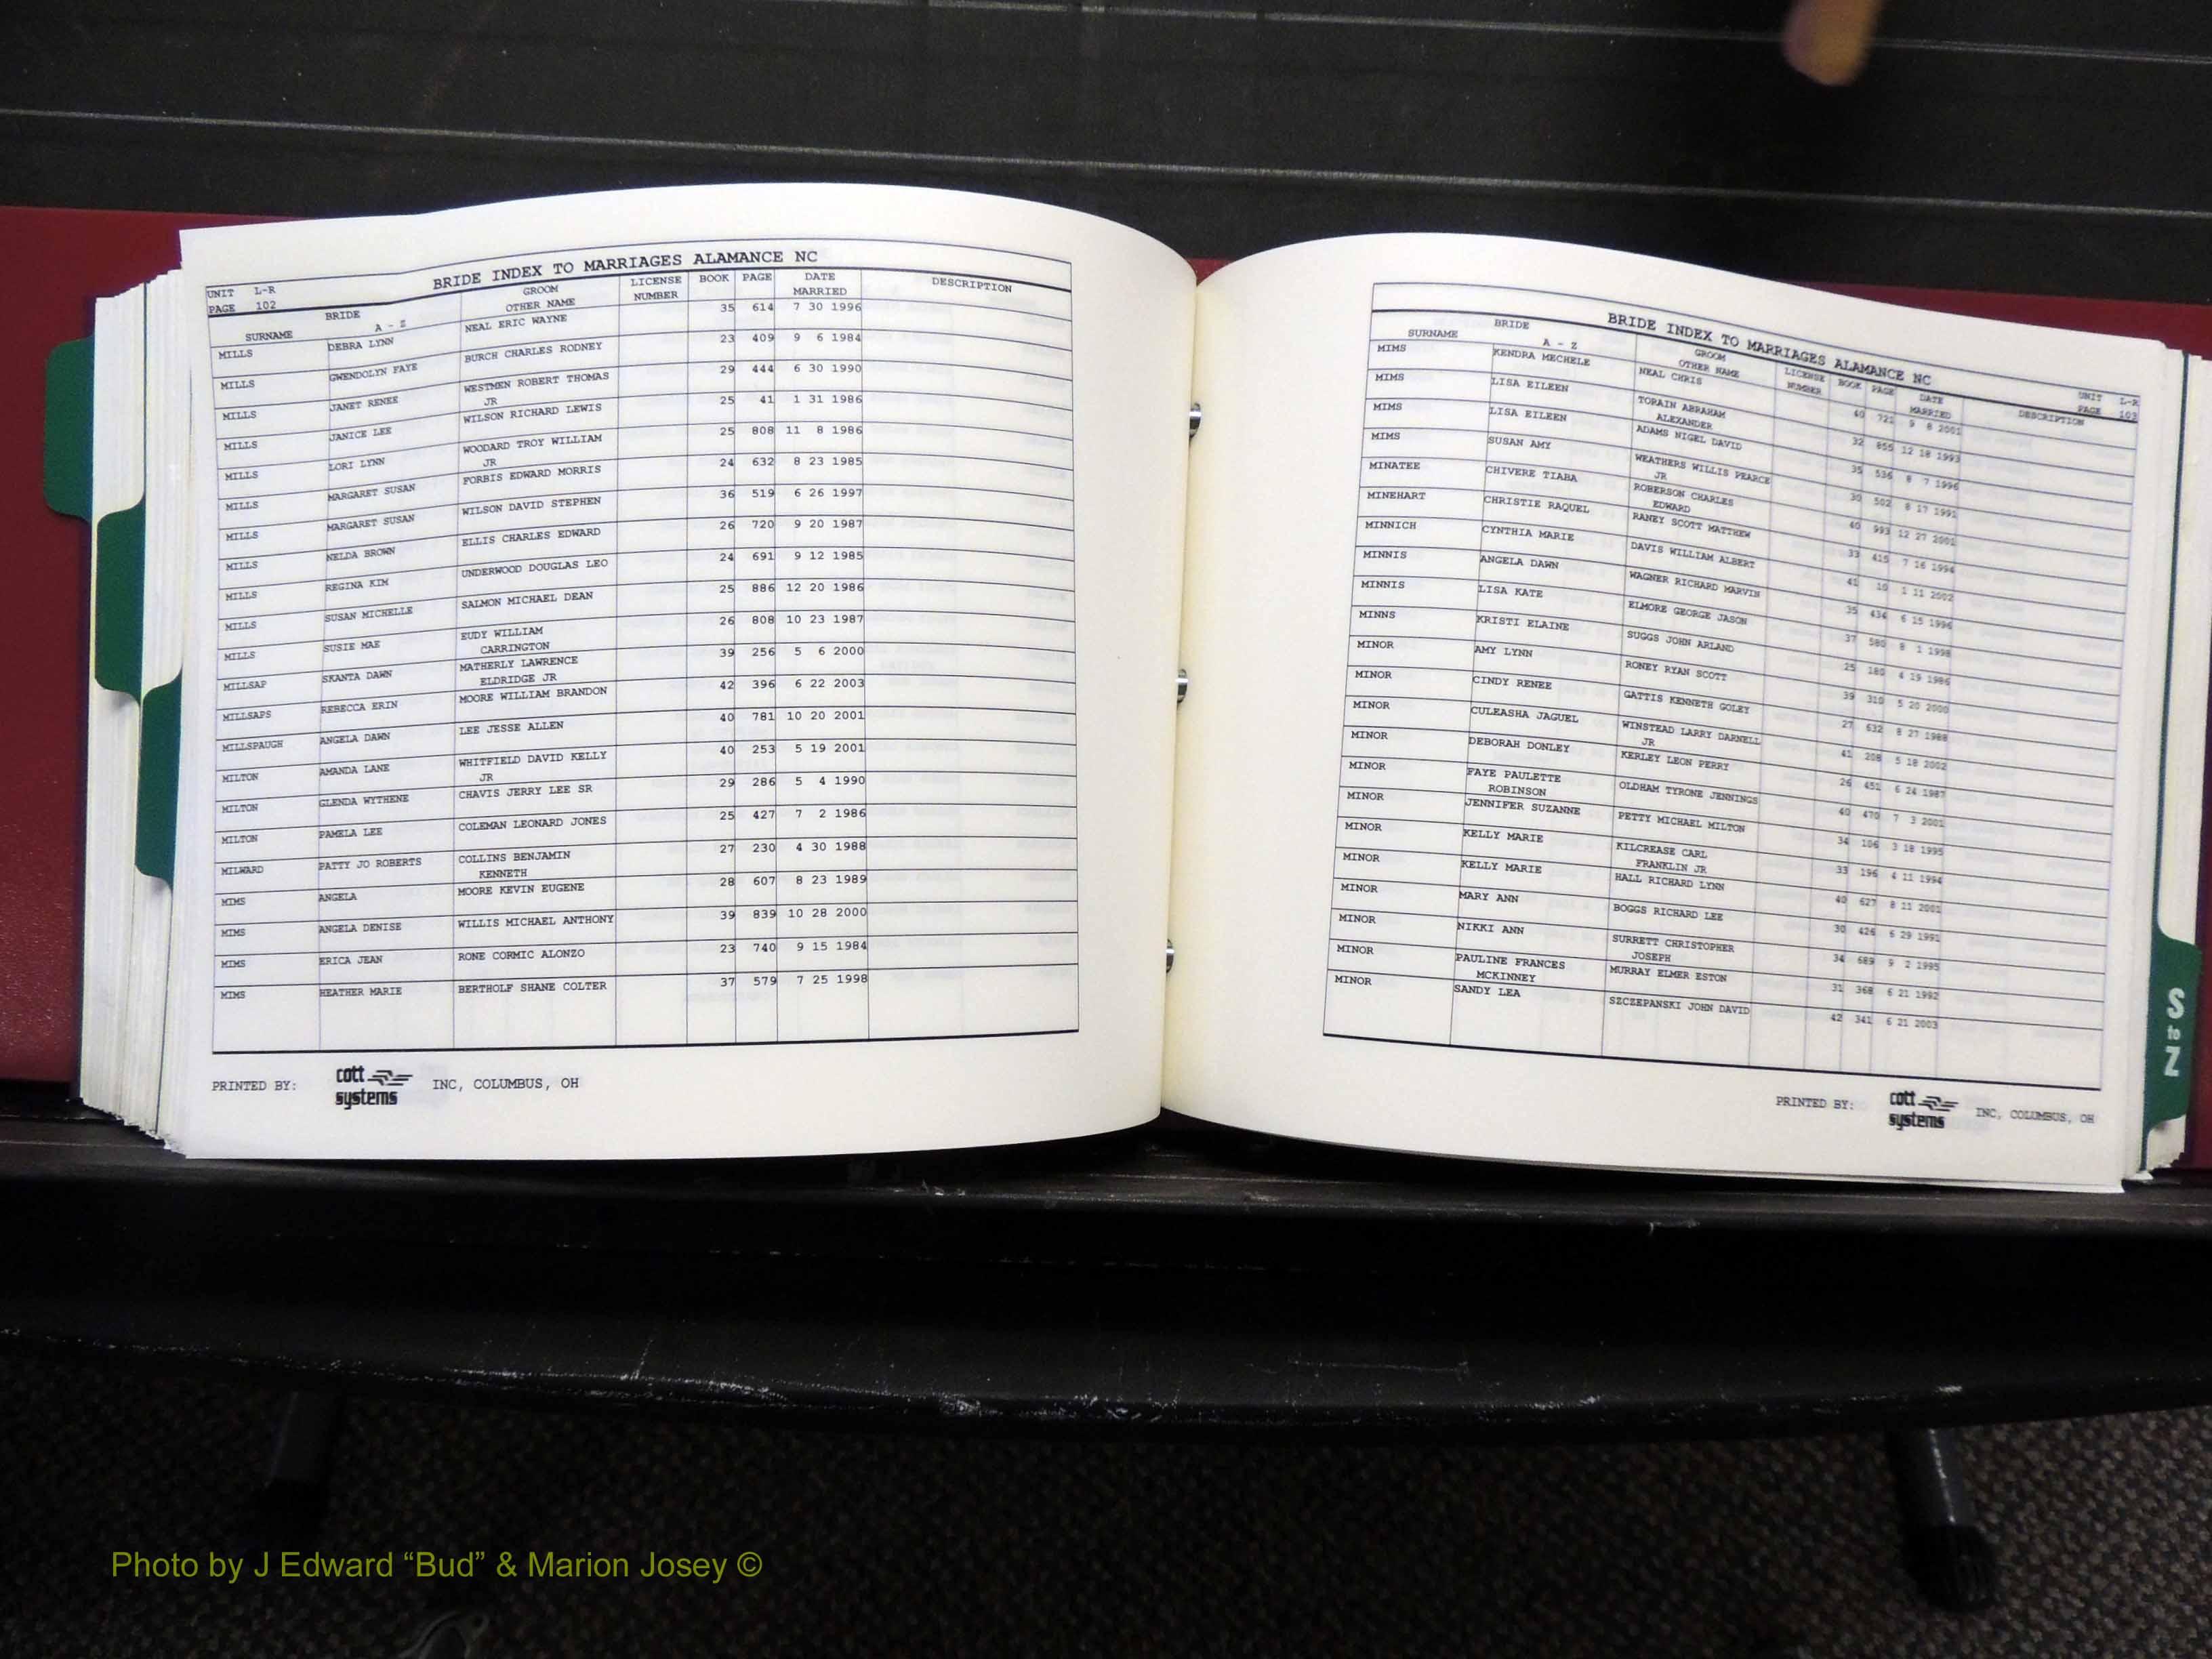 BRIDE INDEX TO MARRIAGES ALAMANCE NC
UNIT L-R
PAGE 102
BRIDE GROOM LICENSE BOOK PAGE DATE DESCRIPTION
SURNAME A - Z OTHER NAME NUMBER MARRIED
MILLS DEBRA LYNN NEAL ERIC WAYNE 35 614 7 30 1996
MILLS GWENDOLYN FAYE BURCH CHARLES RODNEY 23 409 9 6 1984
MILLS JANET RENEE WESTMEN ROBERT THOMAS 29 444 6 30 1990
JR
MILLS JANICE LEE WILSON RICHARD LEWIS 25 41 1 31 1986
MILLS LORI LYNN WOODARD TROY WILLIAM 25 808 11 8 1986
JR
MILLS MARGARET SUSAN FORBIS EDWARD MORRIS 24 632 8 23 1985
MILLS MARGARET SUSAN WILSON DAVID STEPHEN 36 519 6 26 1997
MILLS NELDA BROWN ELLIS CHARLES EDWARD 26 720 9 20 1987
MILLS REGINA KIM UNDERWOOD DOUGLAS LEO 24 691 9 12 1985
MILLS SUSAN MICHELLE SALMON MICHAEL DEAN 25 886 12 20 1986
MILLS SUSIE MAE EUDY WILLIAM 26 808 10 23 1987
CARRINGTON
MILLSAP SKANTA DAWN MATHERLY LAWRENCE 39 256 5 6 2000
ELDRIDGE JR
MILLSAPS REBECCA ERIN MOORE WILLIAM BRANDON 42 396 6 22 2003
MILLSPAUGH ANGELA DAWN LEE JESSE ALLEN 40 781 10 20 2001
MILTON AMANDA LANE WHITFIELD DAVID KELLY 40 253 5 19 2001
JR
MILTON GLENDA WYTHENE CHAVIS JERRY LEE SR 29 286 5 4 1990
MILTON PAMELA LEE COLEMAN LEONARD JONES 25 427 7 2 1986
MILWARD PATTY JO ROBERTS COLLINS BENJAMIN 27 230 4 30 1988
KENNETH
MIMS ANGELA MOORE KEVIN EUGENE 28 607 8 23 1989
MIMS ANGELA DENISE WILLIS MICHAEL ANTHONY 39 839 10 28 2000
MIMS ERICA JEAN RONE CORMIC ALONZO 23 740 9 15 1984
MIMS HEATHER MARIE BERTHOLF SHANE COLTER 37 579 7 25 1998
PRINTED BY: cott systems INC, COLUMBUS, OH
BRIDE INDEX TO MARRIAGES ALAMANCE NC
UNIT L-R
PAGE 103
BRIDE GROOM LICENSE BOOK PAGE DATE DESCRIPTION
SURNAME A - Z OTHER NAME NUMBER MARRIED
MIMS KENDRA MECHELE NEAL CHRIS 40 721 9 8 2001
MIMS LISA EILEEN TORAIN ABRAHAM 32 855 12 18 1993
ALEXANDER
MIMS LISA EILEEN ADAMS NIGEL DAVID 35 536 8 7 1996
MIMS SUSAN AMY WEATHERS WILLIS PEARCE 30 502 8 17 1991
JR
MINATEE CHIVERE TIABA ROBERSON CHARLES 40 993 12 27 2001
EDWARD
MINEHART CHRISTIE RAQUEL RANEY SCOTT MATTHEW 33 415 7 16 1994
MINNICH CYNTHIA MARIE DAVIS WILLIAM ALBERT 41 10 1 11 2002
MINNIS ANGELA DAWN WAGNER RICHARD MARVIN 35 434 6 15 1996
MINNIS LISA KATE ELMORE GEORGE JASON 37 580 8 1 1998
MINNS KRISTI ELAINE SUGGS JOHN ARLAND 25 180 4 19 1986
MINOR AMY LYNN RONEY RYAN SCOTT 39 310 5 20 2000
MINOR CINDY RENEE GATTIS KENNETH GOLEY 27 632 8 27 1988
MINOR CULEASHA JAGUEL WINSTEAD LARRY DARNELL 41 208 5 18 2002
JR
MINOR DEBORAH DONLEY KERLEY LEON PERRY 26 451 6 24 1987
MINOR FAYE PAULETTE OLDHAM TYRONE JENNINGS 40 470 7 3 2001
ROBINSON
MINOR JENNIFER SUZANNE PETTY MICHAEL MILTON 34 106 3 18 1995
MINOR KELLY MARIE KILCREASE CARL 33 196 4 11 1994
FRANKLIN JR
MINOR KELLY MARIE HALL RICHARD LYNN 40 627 8 11 2001
MINOR MARY ANN BOGGS RICHARD LEE 30 426 6 29 1991
MINOR NIKKI ANN SURRETT CHRISTOPHER 34 689 9 2 1995
JOSEPH
MINOR PAULINE FRANCES MURRAY ELMER ESTON 31 368 6 21 1992
MCKINNEY
MINOR SANDY LEA SZCZEPANSKI JOHN DAVID 42 341 6 21 2003
PRINTED BY: cott systems INC, COLUMBUS, OH
S
to
Z
Photo by J Edward “Bud” & Marion Josey ©